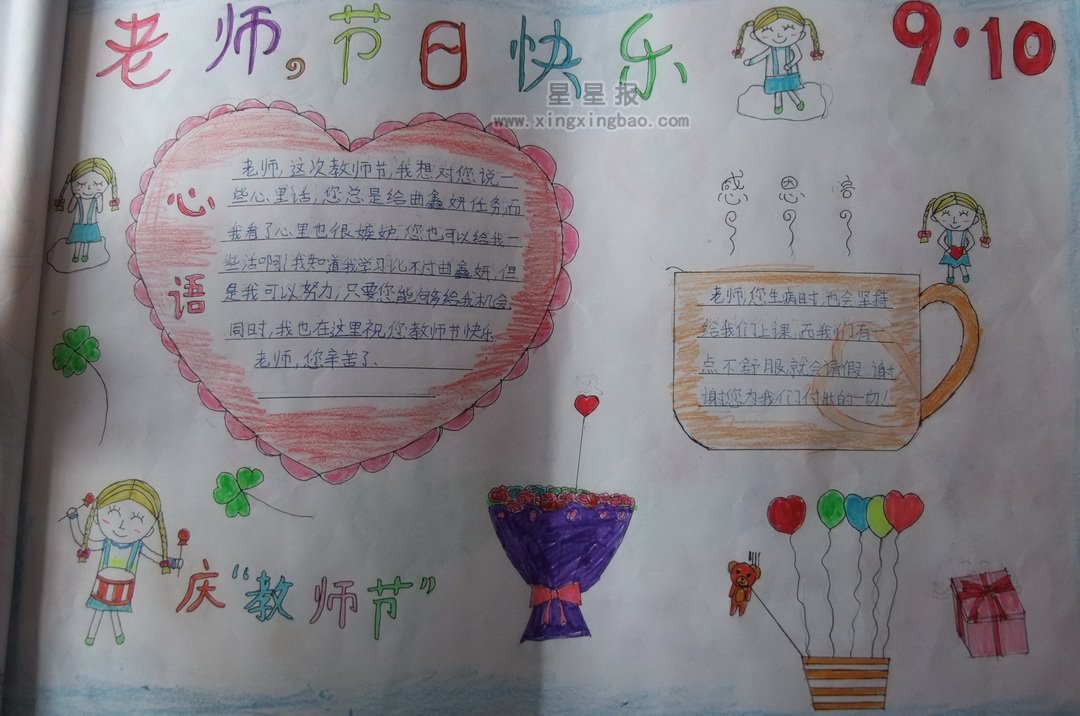 老师,节日快乐
9·10
星星报
www.xingxingbao.com
心语
老师,这次教师节,我想对您说一
些心里话,您总是给曲鑫妍任务,而
我看了心里也很嫉妒,您也可以给我一
些活啊!我知道我学习比不过曲鑫妍,但
是我可以努力,只要您能够给我机会.
同时,我也在这里祝您教师节快乐
老师,您辛苦了.
感恩
老师,您生病时,也会坚持
给我们上课,而我们有一
点不舒服,就会请假,谢
谢您为我们付出的一切!
庆“教师节”